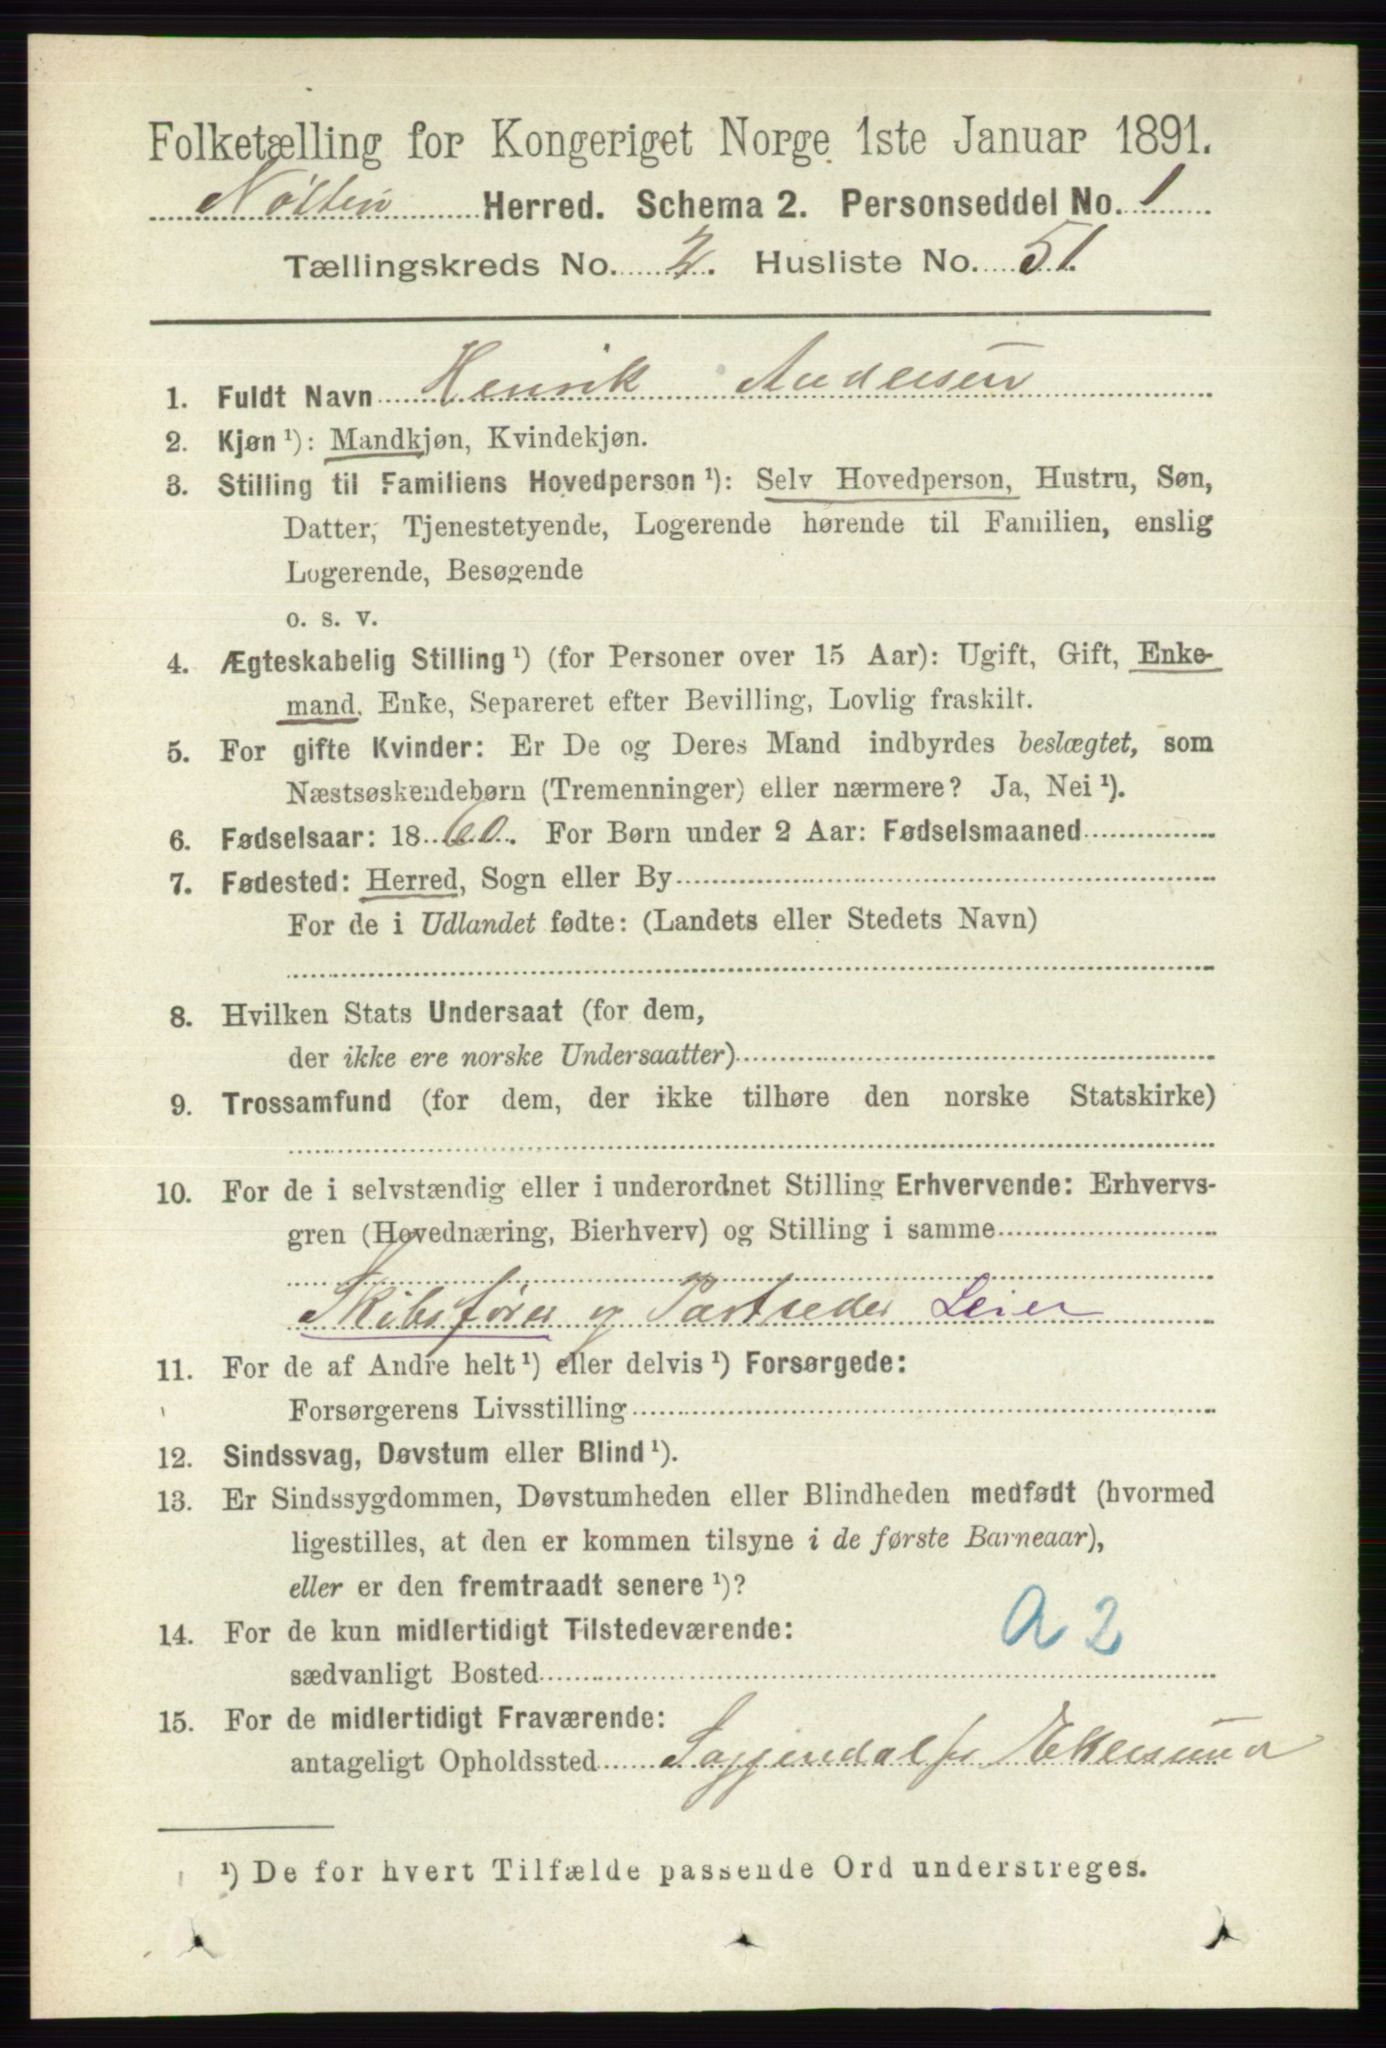 Folketælling for Kongeriget Norge 1ste Januar 1891.
Nötterö Herred. Schema 2. Personseddel No. 1
Tællingskreds No. 2. Husliste No. 51.
1. Fuldt Navn Henrik Andersen
2. Kjøn ¹): Mandkjøn, Kvindekjøn.
3. Stilling til Familiens Hovedperson ¹): Selv Hovedperson, Hustru, Søn,
Datter, Tjenestetyende, Logerende hørende til Familien, enslig
Logerende, Besøgende
o. s. v.
4. Ægteskabelig Stilling ¹) (for Personer over 15 Aar): Ugift, Gift, Enke-
mand, Enke, Separeret efter Bevilling, Lovlig fraskilt.
5. For gifte Kvinder: Er De og Deres Mand indbyrdes beslægtet, som
Næstsøskendebørn (Tremenninger) eller nærmere? Ja, Nei ¹).
6. Fødselsaar: 1860. For Børn under 2 Aar: Fødselsmaaned
7. Fødested: Herred, Sogn eller By
For de i Udlandet fødte: (Landets eller Stedets Navn)
8. Hvilken Stats Undersaat (for dem,
der ikke ere norske Undersaatter)
9. Trossamfund (for dem, der ikke tilhøre den norske Statskirke)
10. For de i selvstændig eller i underordnet Stilling Erhvervende: Erhvervs-
gren (Hovednæring, Bierhverv) og Stilling i samme
Skibsfører og Partreder Leier
11. For de af Andre helt ¹) eller delvis ¹) Forsørgede:
Forsørgerens Livsstilling
12. Sindssvag, Døvstum eller Blind ¹).
13. Er Sindssygdommen, Døvstumheden eller Blindheden medfødt (hvormed
ligestilles, at den er kommen tilsyne i de første Barneaar),
eller er den fremtraadt senere ¹)?
a 2
14. For de kun midlertidigt Tilstedeværende:
sædvanligt Bosted
15. For de midlertidigt Fraværende:
antageligt Opholdssted Soggendal pr Ekersund
¹) De for hvert Tilfælde passende Ord understreges.